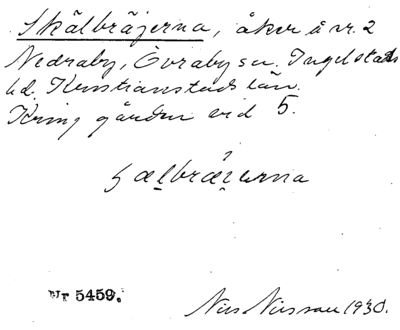 Skälbräjerna, åker å nr. 2
Nedraby, Övraby sn. Ingelstads
hd. Kristianstads län.
Kring gården vid 5.
Nr 5459.
Nils Nilsson 1930.